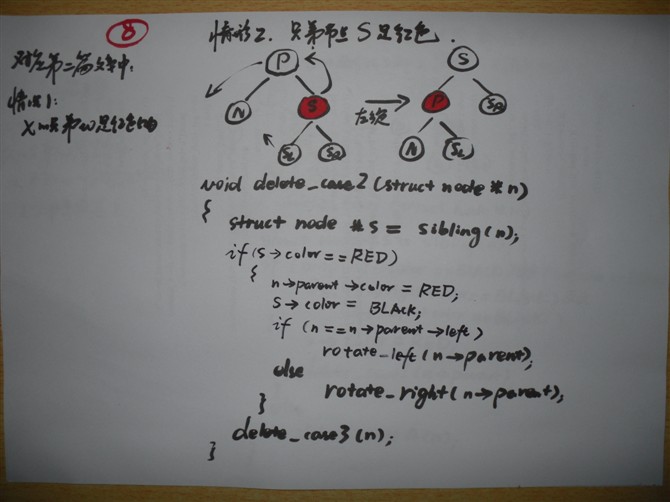 8
情形2. 兄弟节点 S 是红色.
对应第二篇文章中:
情况1:
x的兄弟w是红色的
P
S
N
S
SL
SR
左旋
P
SR
N
SL
void delete_case2(struct node *n)
{
struct node *s = sibling(n);
if(s→color==RED)
{
n→parent→color = RED;
s→color = BLACK;
if (n==n→parent→left)
rotate_left(n→parent);
else
rotate_right(n→parent);
}
delete_case3(n);
}